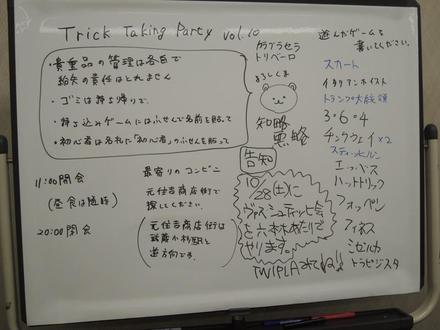 Trick Taking Party vol.10
・貴重品の管理は各自で
紛失の責任はとれません
・ゴミは持ち帰りで
・持ち込みゲームにはふせんで名前を貼って
・初心者は名札に「初心者」のふせんを貼って
11:00開会
(昼食は随時)
20:00閉会
最寄りのコンビニ
元住吉商店街で
探してください。
(元住吉商店街は
武蔵小杉駅と
逆方向です。)
カラアラセラ
トリベーロ
よろしくま
知略
悪略
告知
10/28(土)に
ヴァスシュティッヒ会
を六本木あたりで
やります。
TWIPLAみてね!!
遊んだゲームを
書いてください。
スカート
イタリアンホイスト
トランプ大統領
3・6・4
チンクウェイ×2
スティッヒルン
エッベス
ハットトリック
フォッペン
フィネス
ミゼルカ
トラピジスタ